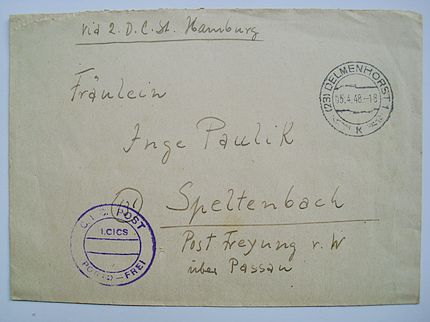 via 2. D.C.St. Hamburg
Fräulein
(23) DELMENHORST 1
4.48.-18
K
Inge Paulik
Speltenbach
C.I.C. POST
I.CICS
PORTO-FREI
Post Freyung v. W
über Passau